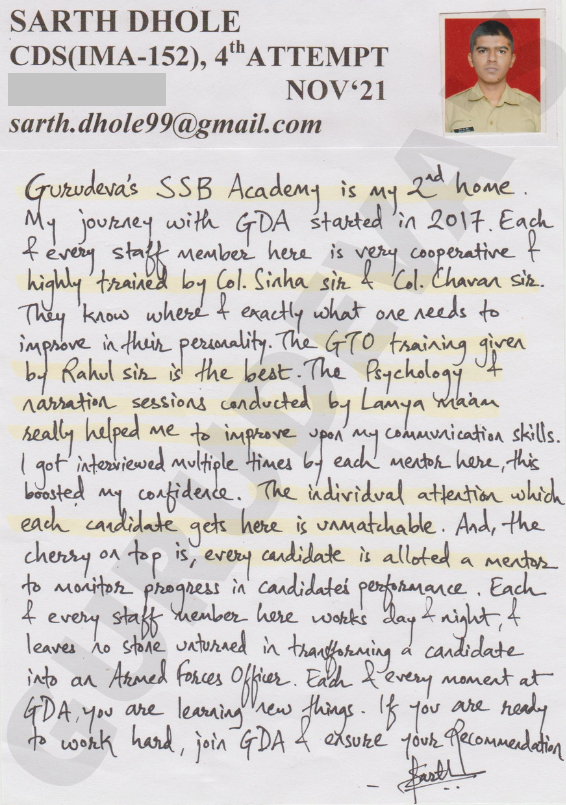 SARTH DHOLE
CDS(IMA-152), 4th ATTEMPT
NOV'21
sarth.dhole99@gmail.com
Gurudeva's SSB Academy is my 2nd home.
My journey with GDA started in 2017. Each
& every staff member here is very cooperative &
highly trained by Col. Sinha sir & Col. Chavan sir.
They know where & exactly what one needs to
improve in their personality. The GTO training given
by Rahul sir is the best. The Psychology &
narration sessions conducted by Lamya ma'am
really helped me to improve upon my communication skills.
I got interviewed multiple times by each mentor here, this
boosted my confidence. The individual attention which
each candidate gets here is unmatchable. And, the
cherry on top is, every candidate is alloted a mentor
to monitor progress in candidate's performance. Each
& every staff member here works day & night, &
leaves no stone unturned in transforming a candidate
into an Armed Forces Officer. Each & every moment at
GDA, you are learning new things. If you are ready
to work hard, join GDA & ensure your Recommendation
Sarth
GURUDEVA'S